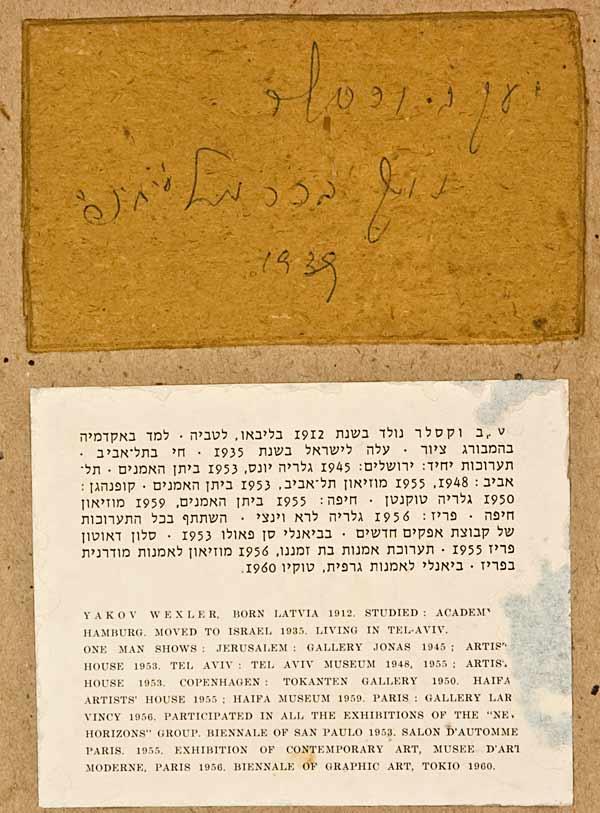 נוף בכרמל
1939
וקסלר נולד בשנת 1912 בליבאו, לטביה · למד באקדמיה
בהמבורג ציור · עלה לישראל בשנת 1935 · חי בתל־אביב ·
תערוכות יחיד: ירושלים: 1945 גלריה יונס, 1953 ביתן האמנים · תל־
אביב: 1948, 1955 מוזיאון תל־אביב, 1953 ביתן האמנים · קופנהגן:
1950 גלריה טוקנטן · חיפה: 1955 ביתן האמנים, 1959 מוזיאון
חיפה · פריז: 1956 גלריה לרא וינצי · השתתף בכל התערוכות
של קבוצת אפקים חדשים · בביאנלי סן פאולו 1953 · סלון דאוטון
פריז 1955 · תערוכת אמנות בת זמננו, 1956 מוזיאון לאמנות מודרנית
בפריז · ביאנלי לאמנות גרפית, טוקיו 1960.
YAKOV WEXLER, BORN LATVIA 1912. STUDIED: ACADEM
HAMBURG. MOVED TO ISRAEL 1935. LIVING IN TEL-AVIV.
ONE MAN SHOWS: JERUSALEM: GALLERY JONAS 1945; ARTIS'
HOUSE 1953. TEL AVIV: TEL AVIV MUSEUM 1948, 1955; ARTIS
HOUSE 1953. COPENHAGEN: TOKANTEN GALLERY 1950. HAIFA
ARTISTS' HOUSE 1955; HAIFA MUSEUM 1959. PARIS: GALLERY LAR
VINCY 1956. PARTICIPATED IN ALL THE EXHIBITIONS OF THE "NE
HORIZONS" GROUP. BIENNALE OF SAN PAULO 1953. SALON D'AUTOMME
PARIS. 1955. EXHIBITION OF CONTEMPORARY ART, MUSEE D'ART
MODERNE, PARIS 1956. BIENNALE OF GRAPHIC ART, TOKIO 1960.